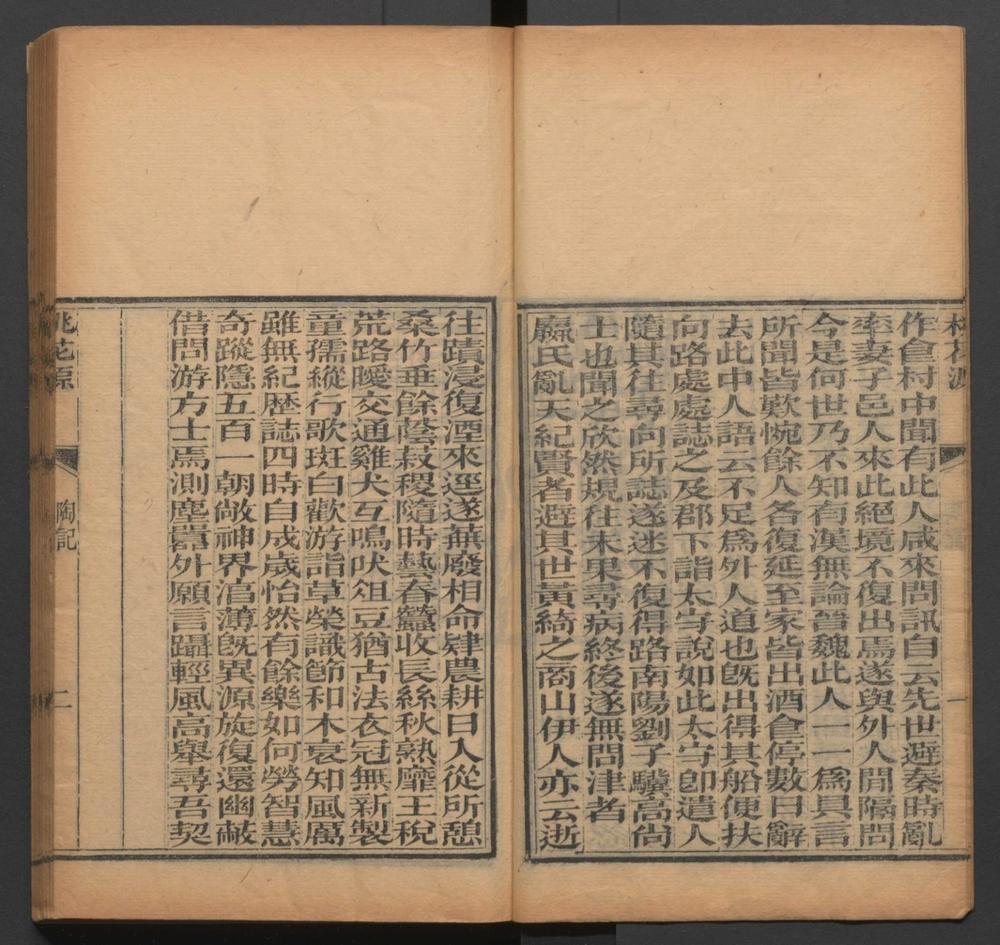 作食村中聞有此人咸來問訊自云先世避秦時亂
率妻子邑人來此絕境不復出焉遂與外人間隔問
今是何世乃不知有漢無論晉魏此人一一爲具言
所聞皆歎惋餘人各復延至家皆出酒食停數日辭
去此中人語云不足爲外人道也旣出得其船便扶
向路處處誌之及郡下詣太守說如此太守卽遣人
隨其往尋向所誌遂迷不復得路南陽劉子驥高尙
士也聞之欣然規往未果尋病終後遂無問津者
嬴氏亂天紀賢者避其世黃綺之商山伊人亦云逝
往蹟浸復湮來逕遂蕪廢相命肄農耕日入從所憩
桑竹垂餘蔭菽稷隨時藝春蠶收長絲秋熟靡王稅
荒路曖交通雞犬互鳴吠俎豆猶古法衣冠無新製
童孺縱行歌斑白歡游詣草榮識節和木衰知風厲
雖無紀歷誌四時自成歲怡然有餘樂如何勞智慧
奇蹤隱五百一朝敞神界湻薄旣異源旋復還幽蔽
借問游方士焉測塵囂外願言躡輕風高舉尋吾契
桃花源 陶記 二